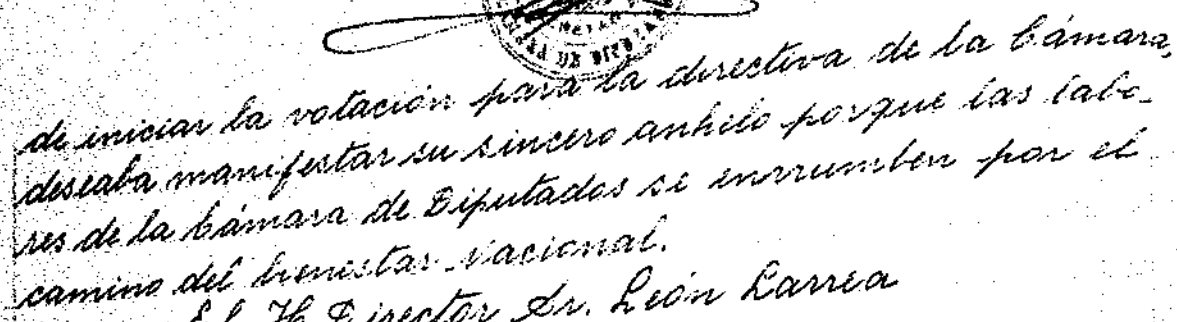 de iniciar la votación para la directiva de la Cámara,
deseaba manifestar su sincero anhelo porque las labo-
res de la Cámara de Diputados se enrrumben por el
camino del bienestar nacional.
El H. Director Dr. León Larrea